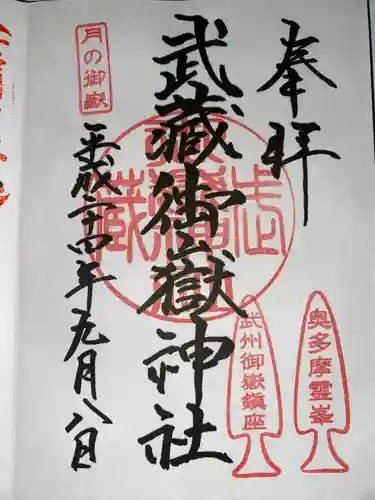 奉拝
奥多摩霊峯
武蔵御嶽神社
武州御嶽鎮座
月の御嶽
平成二十四年九月八日